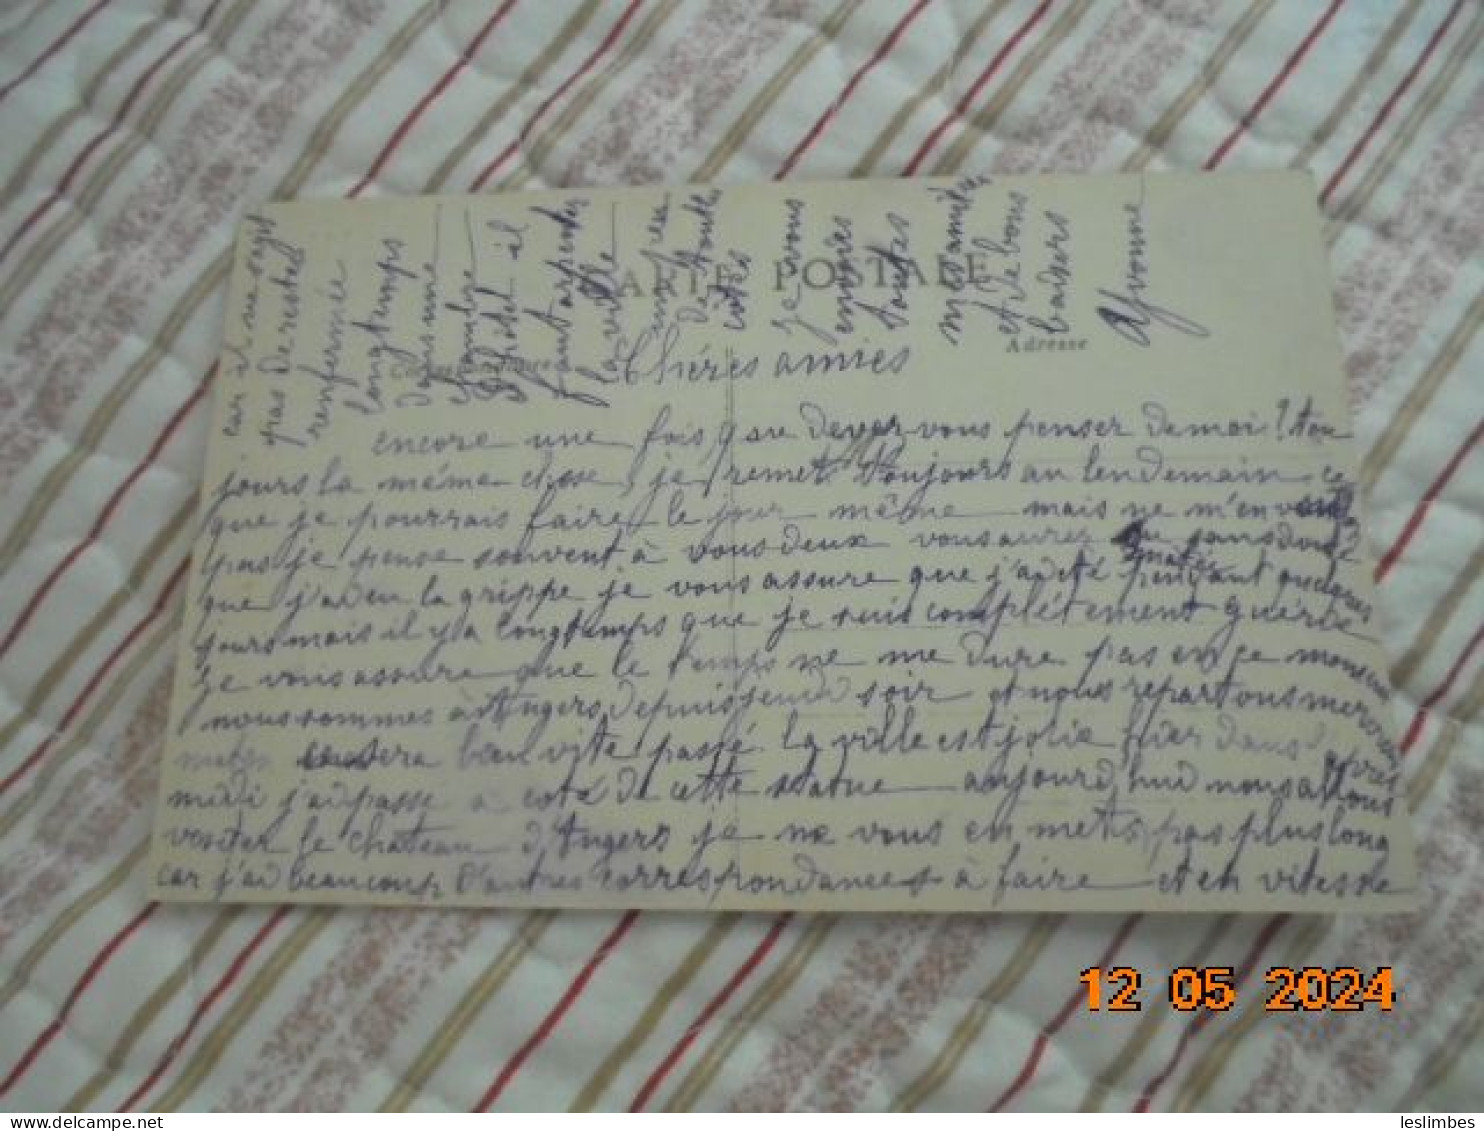 CARTE POSTALE
Correspondance
Adresse
Chéres amies
encore une fois, que devez vous penser de moi? tou
jours la méme chose, je remet toujours au lendemain ce
que je pourrais faire le jour même mais ne m'en voulez
pas je pense souvent à vous deux vous aurez su sans doute
que j'ai eu la grippe je vous assure que j'ai été pendant quelques
jours mais il y a longtemps que je suis complétement guérie
je vous assure que le temps ne me dure pas en ce moment
nous sommes à Angers depuis jeudi soir et nous repartons mercredi
matin ce sera bien vite passé. la ville est jolie hier dans l'après
midi j'ai passé à coté de cette statue aujourd'hui nous allons
visiter le chateau d'Angers je ne vous en mets pas plus long
car j'ai beaucoup d'autres correspondances à faire et en vitesse
car il ne s'agit
pas de rester
renfermée
longtemps
dans une
chambre
d'hotel il
faut arpenter
la ville
un peu
de tout les
côtés
je vous
envoies
toutes
mes amitiés
et de bons
baisers
Yvonne
12 05 2024
leslimbes